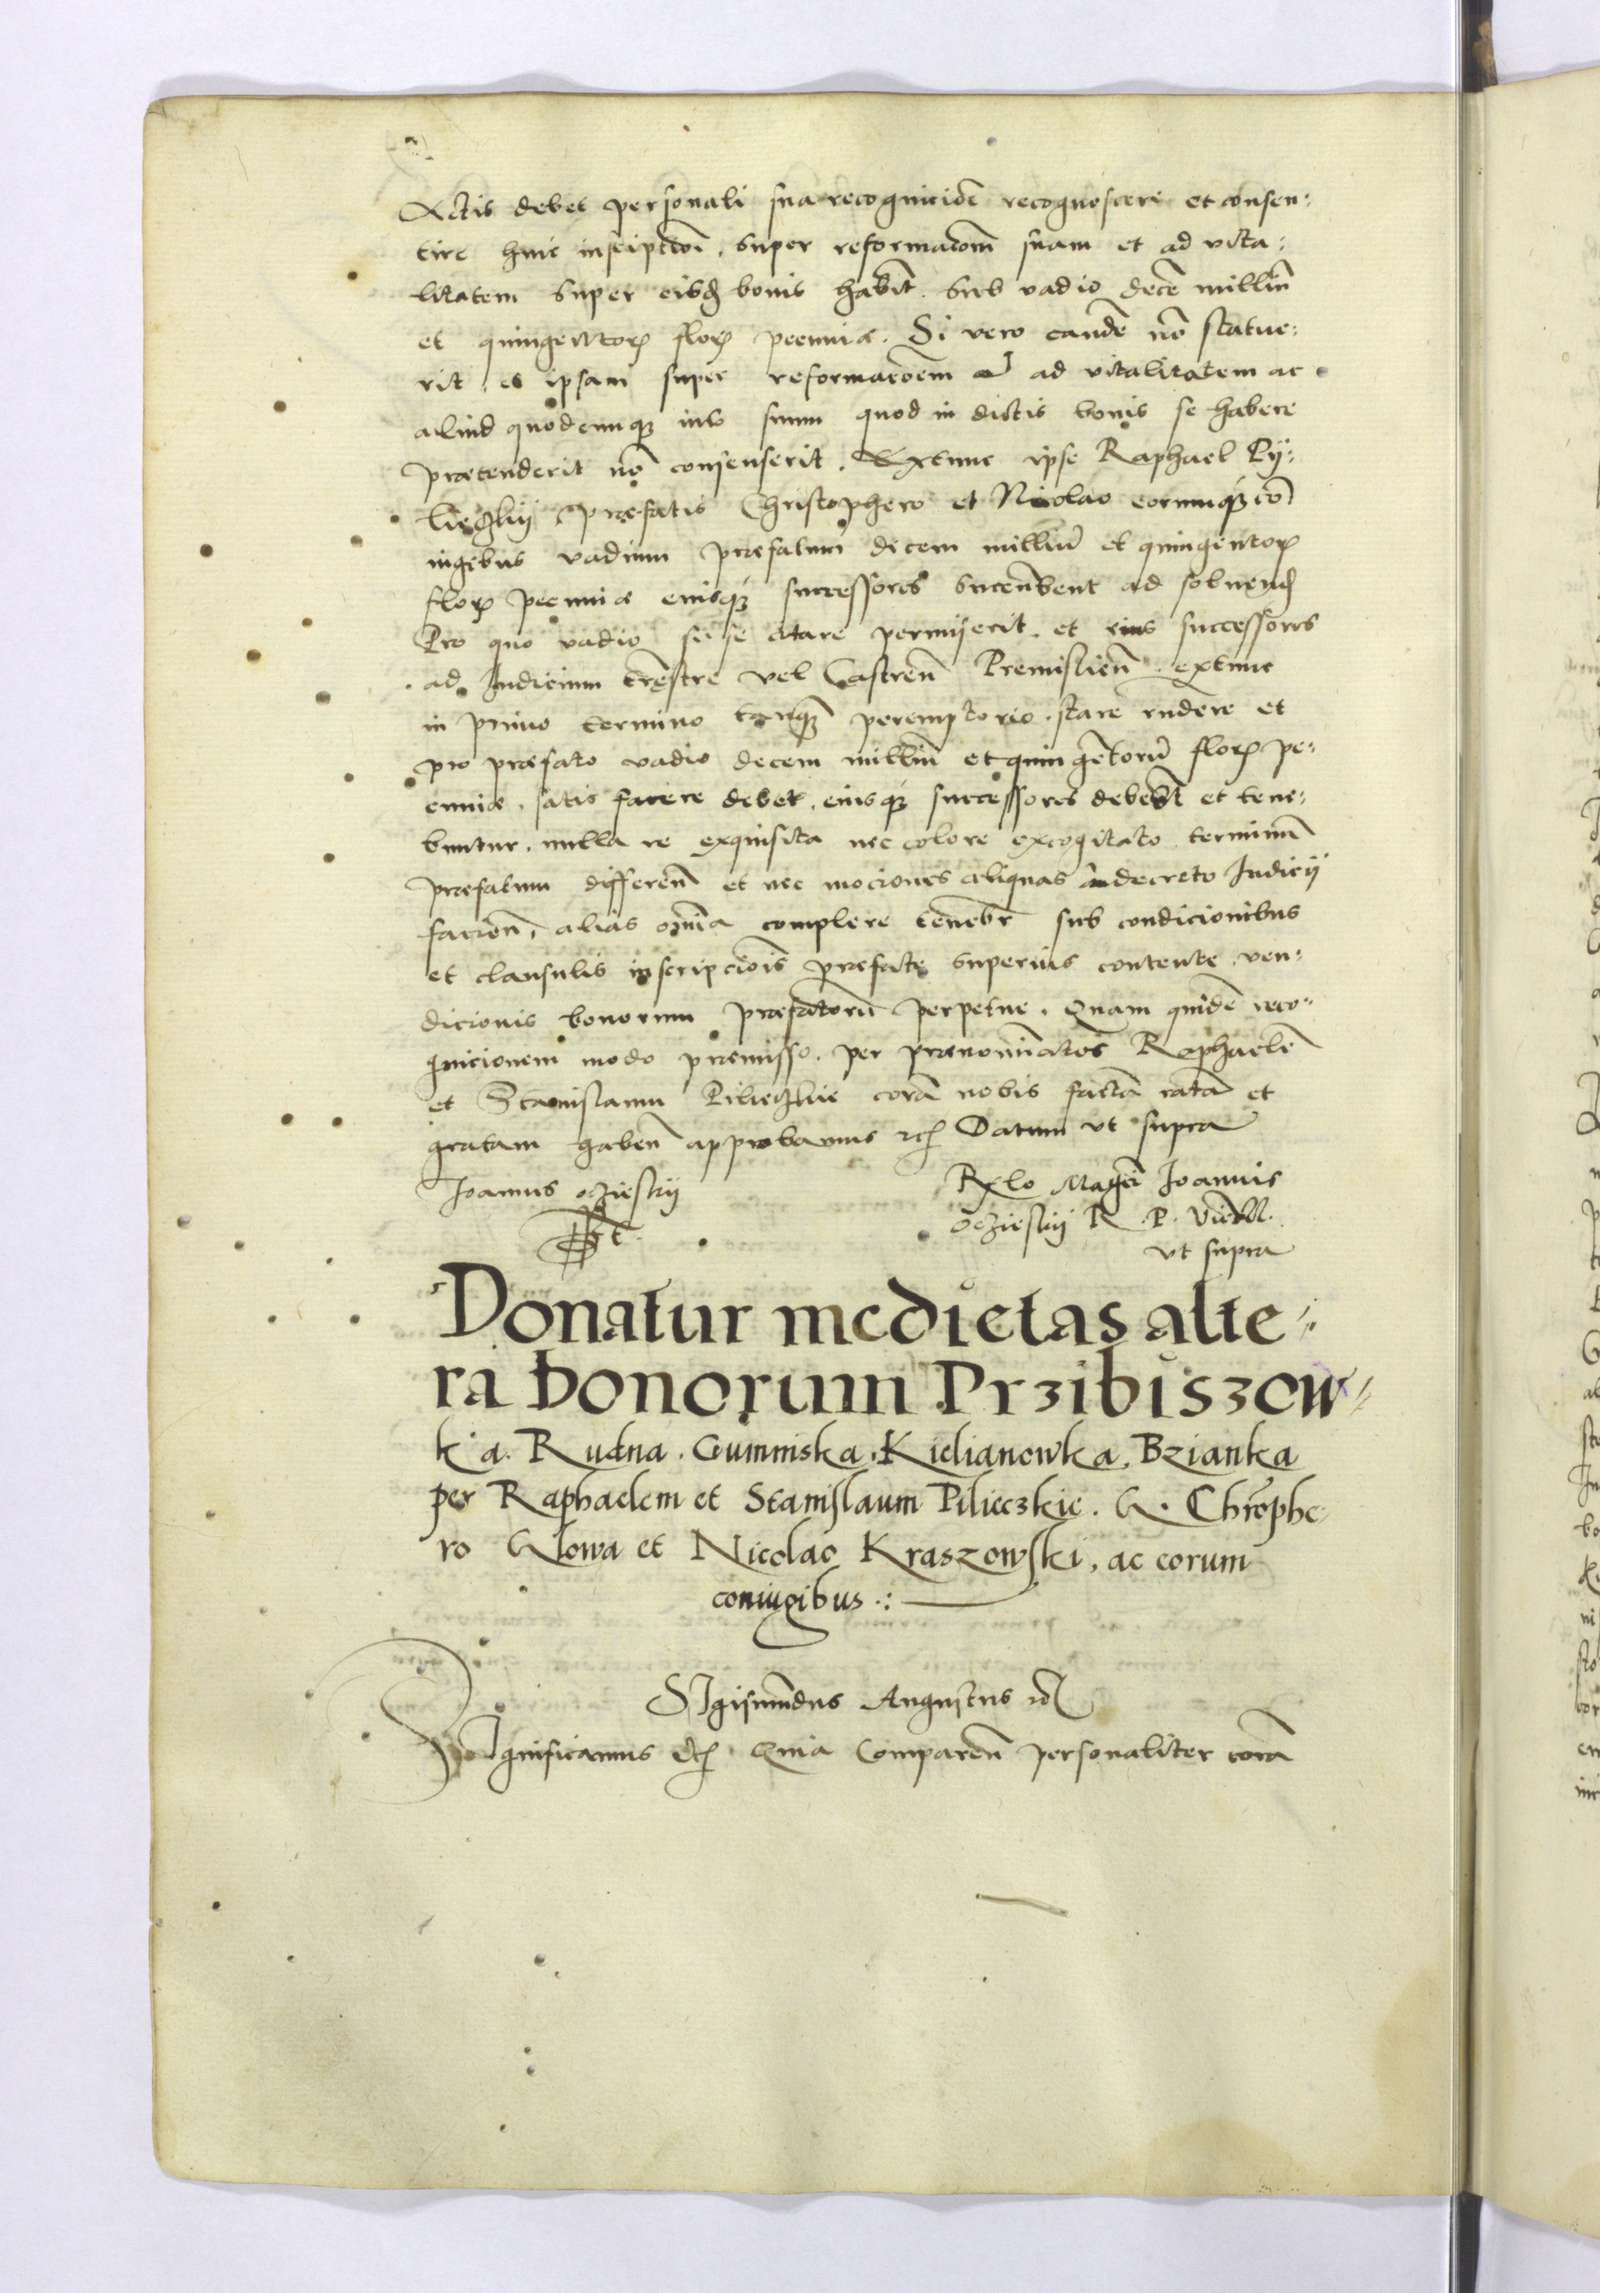 Actis debet personali sua recognicioe͂ recognoscere et consen:
tire huic inscriptioi͂. super reformacom͂ suam et ad vita:
litatem super eisd͂ bonis habit͂. sub vadio dece͂ milliu͂
et quingentor͂ flor͂ pecuniae. Si vero eande͂ no͂ statue:
rit. et ipsam super reformacoem͂ et ad vitalitatem ac
aliud quodcumq; ius suum quod in dictis bonis se habere
praetenderit no͂ consenserit. Extunc ipse Raphael Py:
lieczkij praefatis Christophero et Nicolao eorumq; co͂
iugibus vadium praefatum decem milliu͂ et quingentor͂
flor͂ pecuniae eiusq; successores succumbent ad soluend͂
Pro quo vadio si se citare permiserit. et eius successores
ad Iudicium tr͂estre vel Castren͂ Premislien͂. extunc
in primo termino tanq͂ peremptorio. stare rndere et
pro praefato vadio decem milliu͂ et quingentoru͂ flor͂ pe:
cuniae. satis facere debet. eiusq; successores debebu͂t et tene:
buntur. nulla re exquisita nec colore excogitato terminu͂
praefatum differen͂ et nec mociones aliquas a decreto Iudicij
facien͂. alias omnia complere tenebr͂ sub condicionibus
et clausulis inscripciois͂ praefate superius contente ven:
dicionis bonorum praefatoru͂ perpetue. Quam quide͂ reco:
gnicionem modo praemisso. per praenominatos Raphaele͂
et Stanislaum Pilieczkie cora͂ nobis facta͂ rata͂ et
gratam haben͂ approbamus etc͂ Datum vt supra
Joannes oczieskij
Rxlo Mag͂ci Joannis
oczieskij R. P. Vicecan͂.
vt supra
Donatur medietas alte:
ra bonorum Przibiszow:
ka. Rudna. Gumniska. Kielianowka. Bzianka
per Raphaelem et Stanislaum Pilieczkie. G. Chr͂ophe:
ro Glowa et Nicolao Kraszowski, ac eorum
coniugibus.:
SIgismu͂dus Augustus etc͂
SIgnificamus etc͂ Quia Comparen͂ personaliter cora͂